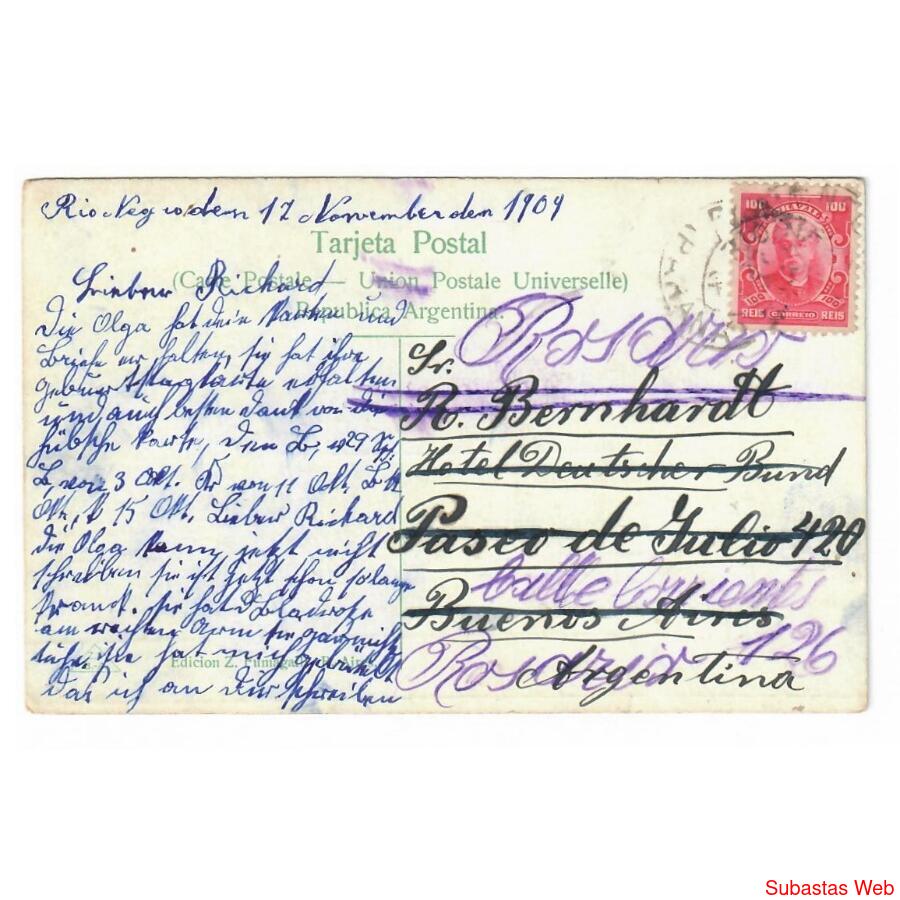 Rio Negro den 17 November den 1909
Tarjeta Postal
(Carte Postale — Union Postale Universelle)
Republica Argentina.
Lieber Richard
Die Olga hat dein Karten und
Briefe erhalten, sie hat ihre
geburtstagkarte erhalten
und auch besten dank von die
hübsche Karte, den B, v 29
B, von 3 Okt. von 11 Okt. B
Okt, 15 Okt. Lieber Richard
die Olga kann jetzt nicht
schreiben sie ist jetzt schon so lange
krank. sie hat
am rechten Arm sie gar nicht
sie hat mich
das ich an Dir schreiben
Edicion Z. Fumagalli B. Aires
100 BRAZIL 100
100 100
REIS CORREIO REIS
Rosario
Sr.
R. Bernhardt
Hotel Deutscher Bund
Paseo de Julio 420
Calle Corrientes
Buenos Aires
126
Rosario
Argentina
Subastas Web